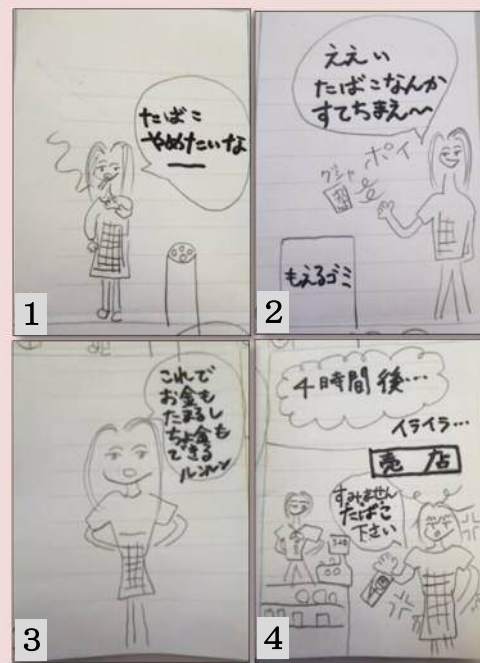 たばこ
やめたいな
1
ええい
たばこなんか
すてちまえ～～
ポイ
グシャ
もえるゴミ
2
これで
お金も
たまるし
ちょ金も
できる
ルンルン
3
4時間後…
イライラ…
売店
すみません
たばこ
下さい
4